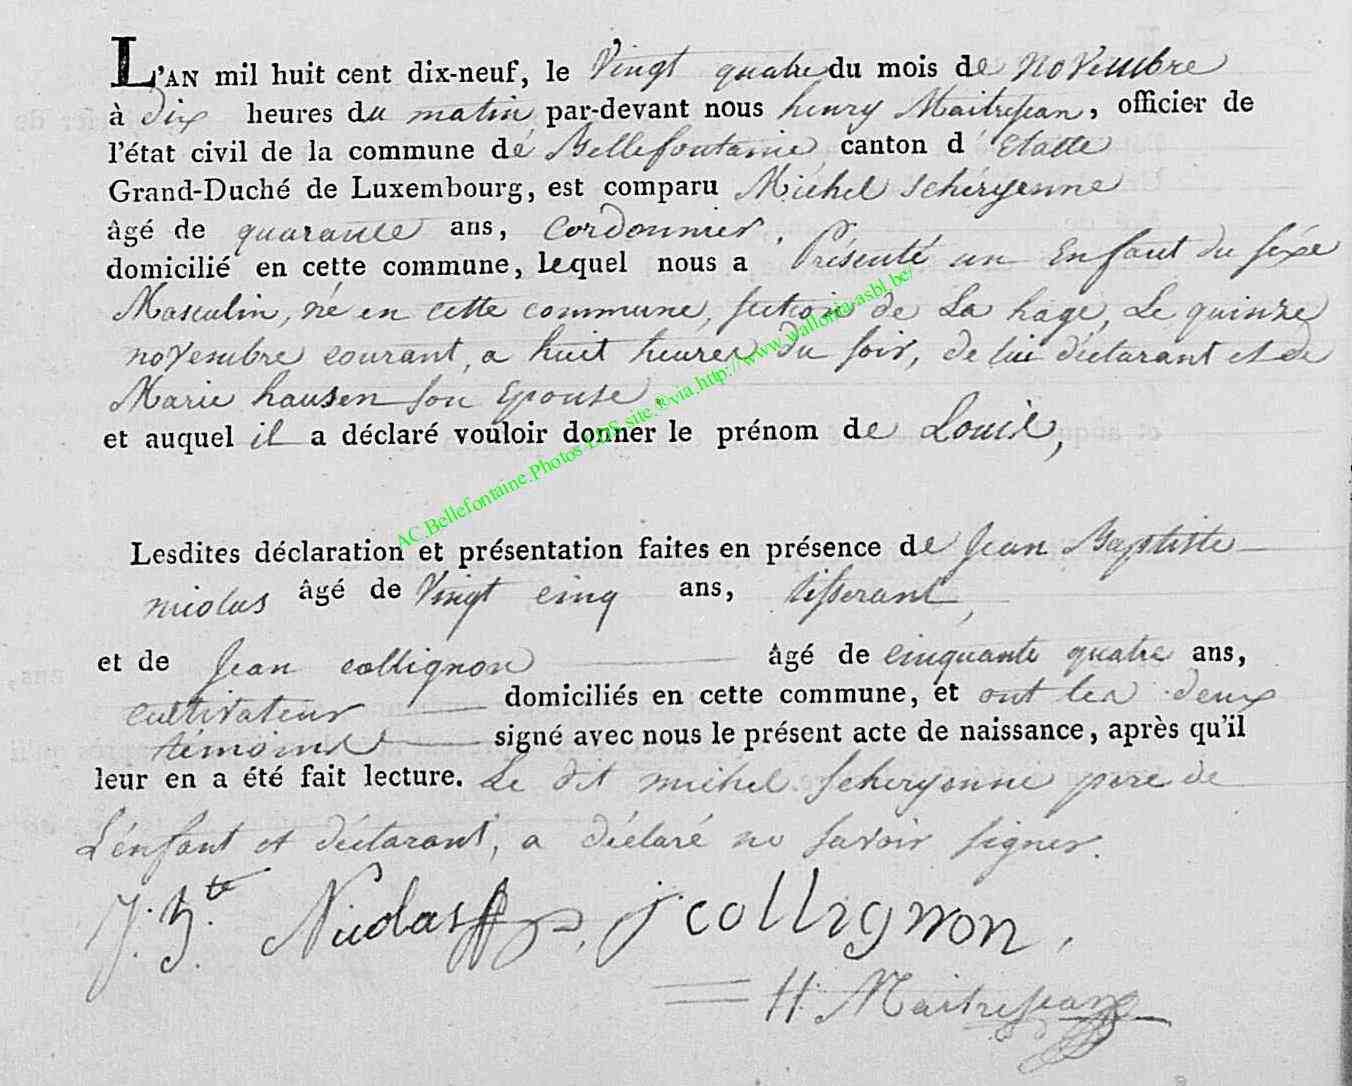 L'AN mil huit cent dix-neuf, le Vingt quatre du mois de novembre
à dix heures du matin par-devant nous henry Maitrejean, officier de
l'état civil de la commune de Bellefontaine canton d'Etalle
Grand-Duché de Luxembourg, est comparu Michel Scheryenne
âgé de quarante ans, Cordonnier.
domicilié en cette commune, lequel nous a Présenté un Enfant du sexe
Masculin, né en cette commune, section de La hage, Le quinze
novembre courant, a huit heures du soir, de lui déclarant et de
Marie hausen son Epouse.
et auquel il a déclaré vouloir donner le prénom de Louis,
AC.Bellefontaine.Photos LDS site ®via http://www.wallonia-asbl.be/
Lesdites déclaration et présentation faites en présence de Jean Baptiste
nicolas âgé de Vingt cinq ans, tisserant,
et de Jean collignon âgé de cinquante quatre ans,
cultivateur domiciliés en cette commune, et ont les deux
témoins signé avec nous le présent acte de naissance, après qu'il
leur en a été fait lecture. Le dit michel Scheryenne pere de
L'énfant et déclarant, a déclaré ne savoir signer.
J. Bte. Nicolas, j collignon,
H. Maitrejean